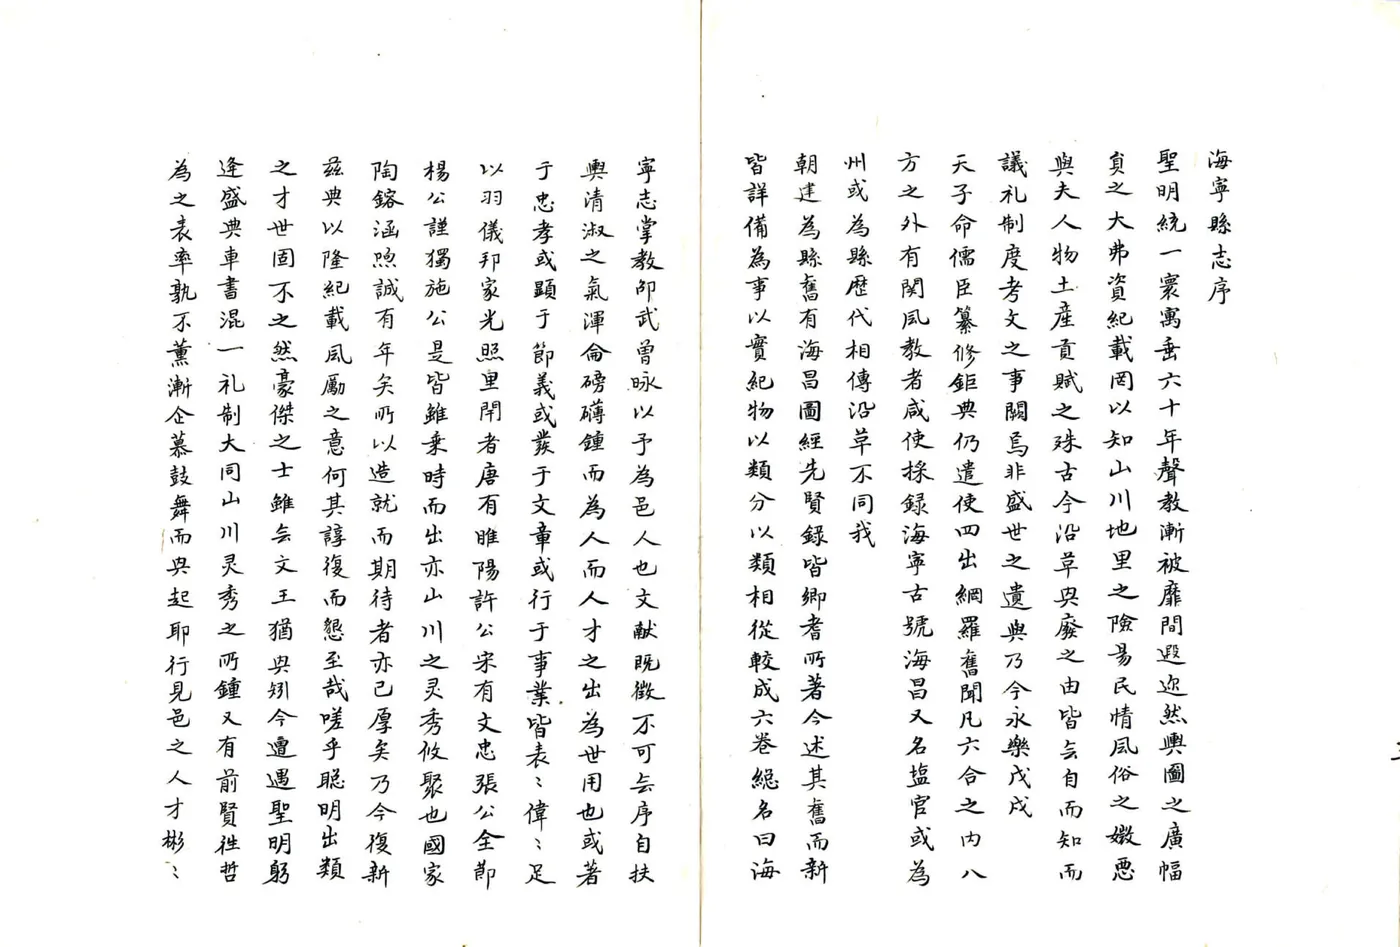 海寧縣志序
聖明統一寰寓垂六十年聲教漸被靡間遐迩然輿圖之廣幅
負之大弗資紀載罔以知山川地里之險易民情風俗之媺惡
與夫人物土産貢賦之殊古今沿革興廢之由皆無自而知而
議礼制度考文之事闕焉非盛世之遺典乃今永樂戊戍
天子命儒臣纂修鉅典仍遣使四出網羅舊聞凡六合之内八
方之外有関風教者咸使採録海寧古號海昌又名塩官或為
州或為縣歷代相傳沿革不同我
朝建為縣舊有海昌圖經先賢録皆鄉耆所著今述其舊而新
皆詳備為事以實紀物以類分以類相從較成六巻緫名曰海
寧志掌教邵武曾咏以予為邑人也文献既徵不可無序自扶
輿清淑之氣渾侖磅礴鍾而為人而人才之出為世用也或著
于忠孝或顕于節義或發于文章或行于事業皆表〻偉〻足
以羽儀邦家光照里閈者唐有睢陽許公宋有文忠張公全節
楊公謹獨施公是皆雖乗時而出亦山川之灵秀攸聚也國家
陶鎔涵煦誠有年矣所以造就而期待者亦已厚矣乃今復新
茲典以隆紀載風勵之意何其諄復而懇至哉嗟乎聡明出類
之才世固不之然豪傑之士雖無文王猶興矧今遭遇聖明躬
逢盛典車書混一礼制大同山川灵秀之所鍾又有前賢徃哲
為之表率孰不薰漸企慕鼓舞而興起耶行見邑之人才彬〻